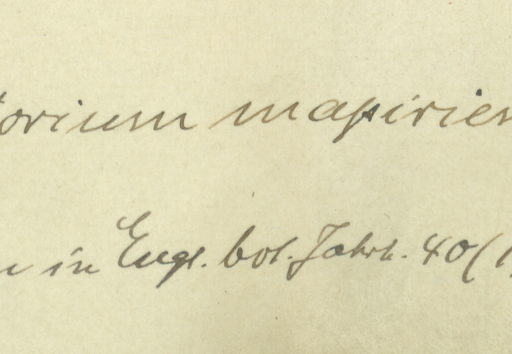 orium mapirien
n in Engl. bot. Jahrb. 40 (1